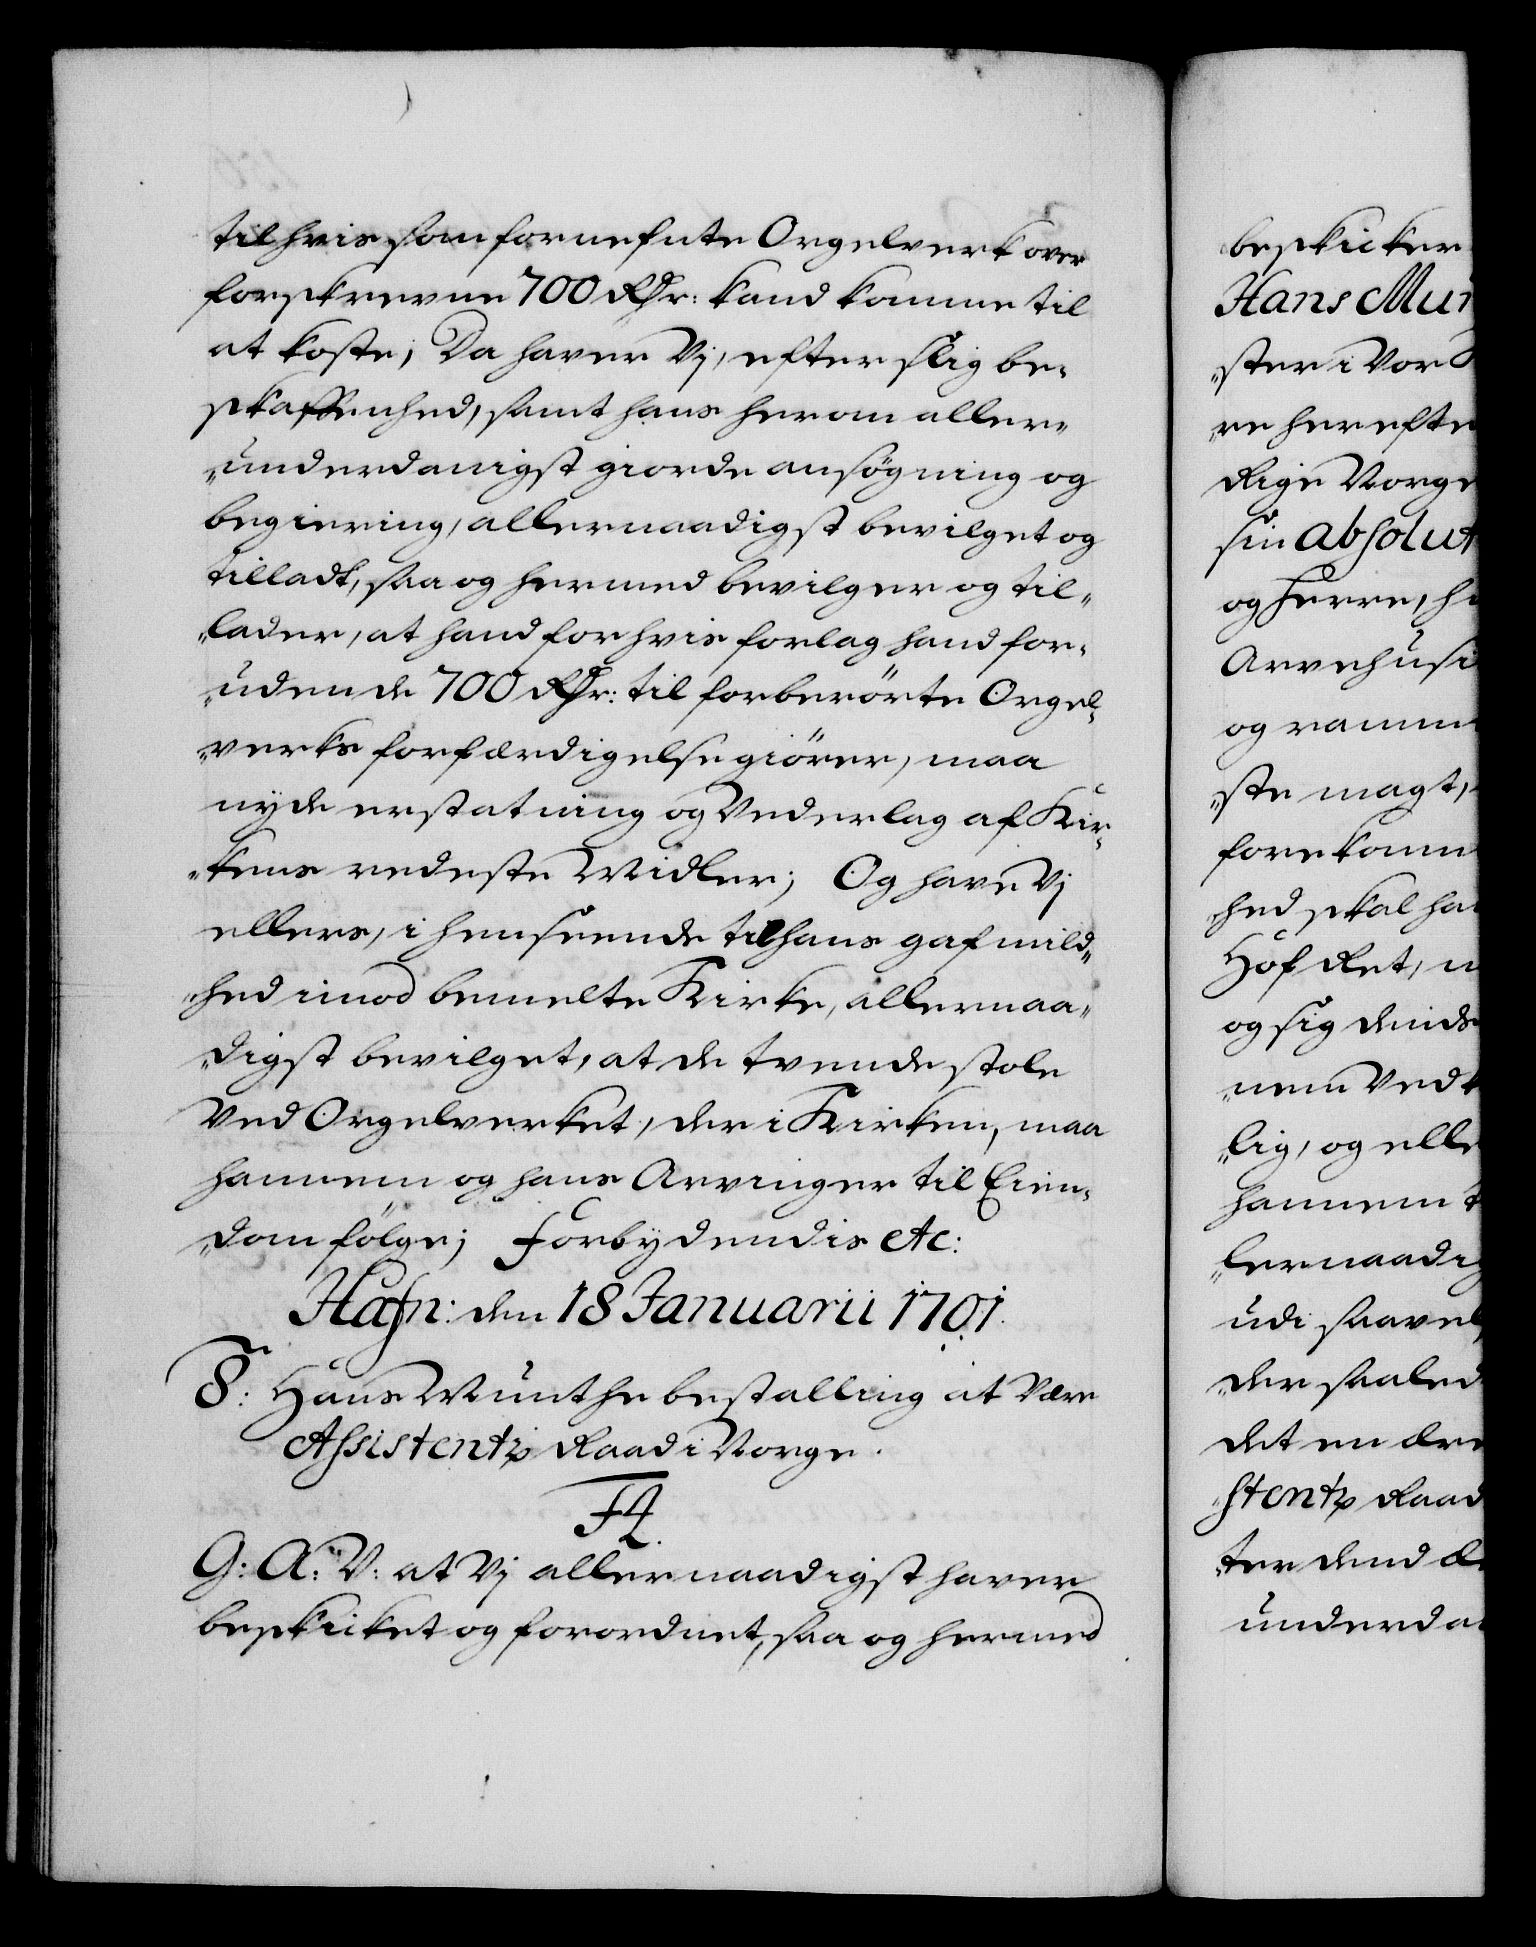 til hvis som fornefnte Orgelverk over
forskrevne 700 Rdr: kand komme til
at koste; Da haver Vj, efter slig be-
skaffenhed, samt hans herom aller-
underdanigst giorde ansøgning og
begiering, allernaadigst bevilget og
tilladt, saa og hermed bevilger og til-
lader, at hand for hvis forlag hand for-
uden de 700 Rdr: til forberörte Orgel-
verks forfærdigelse giörer, maa
nyde erstatning og Vederlag af Kir-
kens redeste Midler; Og have Vj
ellers, i henseende til hans gafmild-
hed imod bemelte Kirke, allernaa-
digst bevilget, at de tvende stole
Ved Orgelverket, der i Kirken, maa
hannem og hans Arvinger til Eien-
dom fölge; Forbydendis etc:
Hafn: den 18 Januarii 1701.
S: Hans Munthe bestalling at Være
Assistentz Raad i Norge.
F4.
G: A: V: at Vj allernaadigst haver
beskicket og forordnet, saa og hermed
beskicker
Hans Mun
ster i Vor
re herefte
Rige Norge
sin absolut
og Herre, h
Arvehusi
og ramm
ste magt,
forekomm
hed skal ha
Hof Ret, n
og sig denids
nem Ved
lig, og elle
hannem t
lernaadig
udi saavel
der saaled
det en ære
stentz Raad
ter dend al
underda